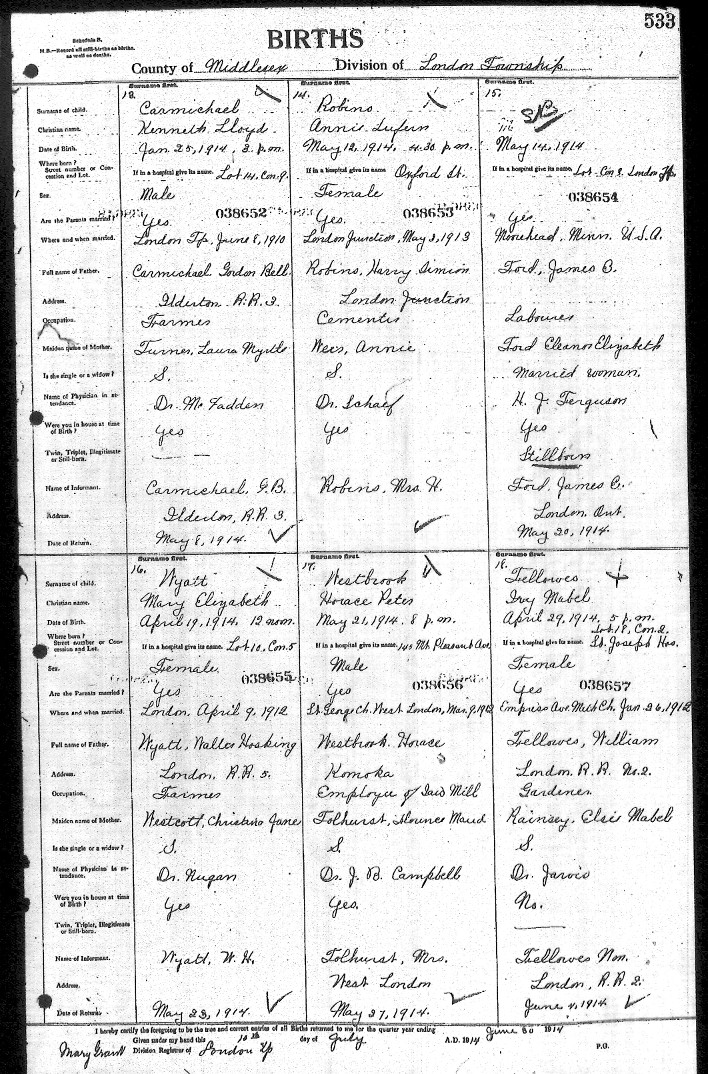 533
Schedule B.
N B.—Record all still-births as births, as well as deaths.
BIRTHS
County of Middlesex Division of London Township
Surname first. Surname first. Surname first.
13. 14. 15.
Surname of child. Carmichael Robins SB
Christian name. Kenneth Lloyd. Annie
Date of Birth. Jan 25, 1914, 3 p.m. May 12, 1914, 4.30 p.m. May 14, 1914
Where born? Street number or Concession and Lot. If in a hospital give its name. Lot 14, Con 9. If in a hospital give its name. Oxford St. If in a hospital give its name. Lot Con 8, London Tp.
Sex. Male Female
038652 038653 038654
Are the Parents married? Yes. Yes. Yes
Where and when married. London Tp, June 8, 1910 London Junction, May 3, 1913 Moorehead, Minn. U.S.A.
Full name of Father. Carmichael Gordon Bell Robins, Harry Simion Ford, James B.
Address. Ilderton R.R. 3 London Junction
Occupation. Farmer Cementer Labourer
Maiden name of Mother. Turner, Laura Myrtle Wees, Annie Ford Eleanor Elizabeth
Is she single or a widow? S. S. Married woman.
Name of Physician in attendance. Dr. McFadden Dr. Schaef H. J. Ferguson
Were you in house at time of Birth? Yes Yes Yes
Twin, Triplet, Illegitimate or Still-born. Stillborn
Name of Informant. Carmichael, G.B. Robins, Mrs. H. Ford, James C.
Address. Ilderton, R.R. 3 London Ont.
Date of Return. May 8, 1914. May 20, 1914.
Surname first. Surname first. Surname first.
16. 17. 18.
Surname of child. Wyatt Westbrook Fellowes
Christian name. Mary Elizabeth Horace Peter Ivy Mabel
Date of Birth. April 19, 1914, 12 noon. May 21, 1914. 8 p.m. April 29, 1914, 5 p.m.
Lot 18, Con. 2.
Where born? Street number or Concession and Lot. If in a hospital give its name. Lot 10, Con. 5 If in a hospital give its name. 145 Mt. Pleasant Ave. If in a hospital give its name. St. Joseph Hos.
Sex. Female. Male Female
038655 038656 038657
Are the Parents married? Yes Yes Yes
Where and when married. London, April 9, 1912 St. George Ch. West London, Mar. 9, 1912 Empress Ave. Meth Ch, Jan 26, 1912
Full name of Father. Wyatt, Walter Hosking Westbrook Horace Fellowes, William
Address. London, R.R. 5. Komoka London. R.R. No. 2.
Occupation. Farmer Employee of Saw Mill Gardener
Maiden name of Mother. Westcott, Christina Jane Tolhurst, Florence Maud Rainsey, Elsie Mabel
Is she single or a widow? S. S. S.
Name of Physician in attendance. Dr. Nugan Dr. J. B. Campbell Dr. Jarvis
Were you in house at time of Birth? Yes Yes. No.
Twin, Triplet, Illegitimate or Still-born.
Name of Informant. Wyatt, W. H. Tolhurst, Mrs. Fellowes Wm.
Address. West London London, R.R. 2.
Date of Return. May 23, 1914. May 27, 1914. June 4, 1914
I hereby certify the foregoing to be the true and correct entries of all Births returned to me for the quarter year ending June 30 1914
Given under my hand this 10th day of July A.D. 1914
Mary Grant Division Registrar of London Tp P.O.